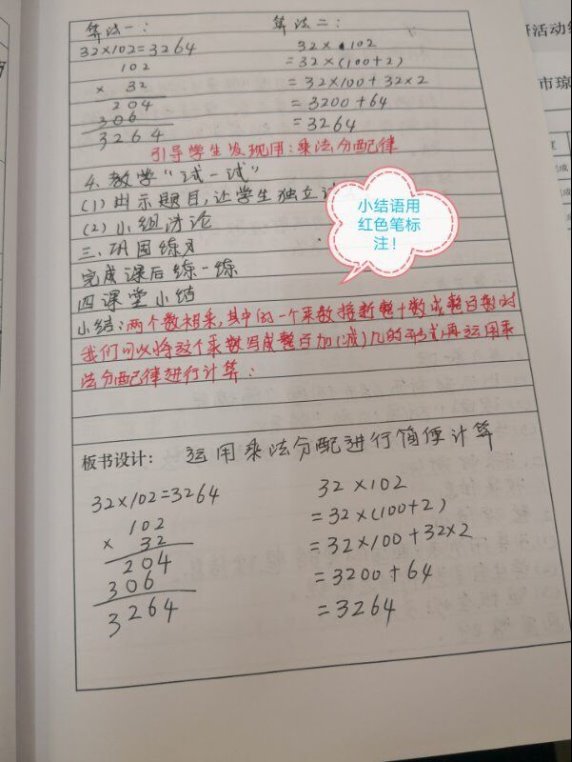 算法一：
算法二：
32×102=3264
102
× 32
204
306
3264
32×102
=32×(100+2)
=32×100+32×2
=3200+64
=3264
引导学生发现用：乘法分配律
4.教学“试一试”
(1)出示题目，让学生独立
(2)小组讨论
三、巩固练习
完成课后练一练
四课堂小结
小结：两个数相乘，其中的一个乘数接近整十数或整百数时
我们可以将这个乘数写成整百加(减)几的形式再运用乘
法分配律进行计算：
小结语用
红色笔标
注！
板书设计：运用乘法分配进行简便计算
32×102=3264
102
× 32
204
306
3264
32×102
=32×(100+2)
=32×100+32×2
=3200+64
=3264
活动
市琼